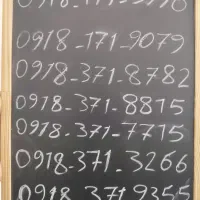 0918-171-9079
0918-371-8782
0918-371-8815
0918-371-7715
0918-371-3266
0918-371-9355